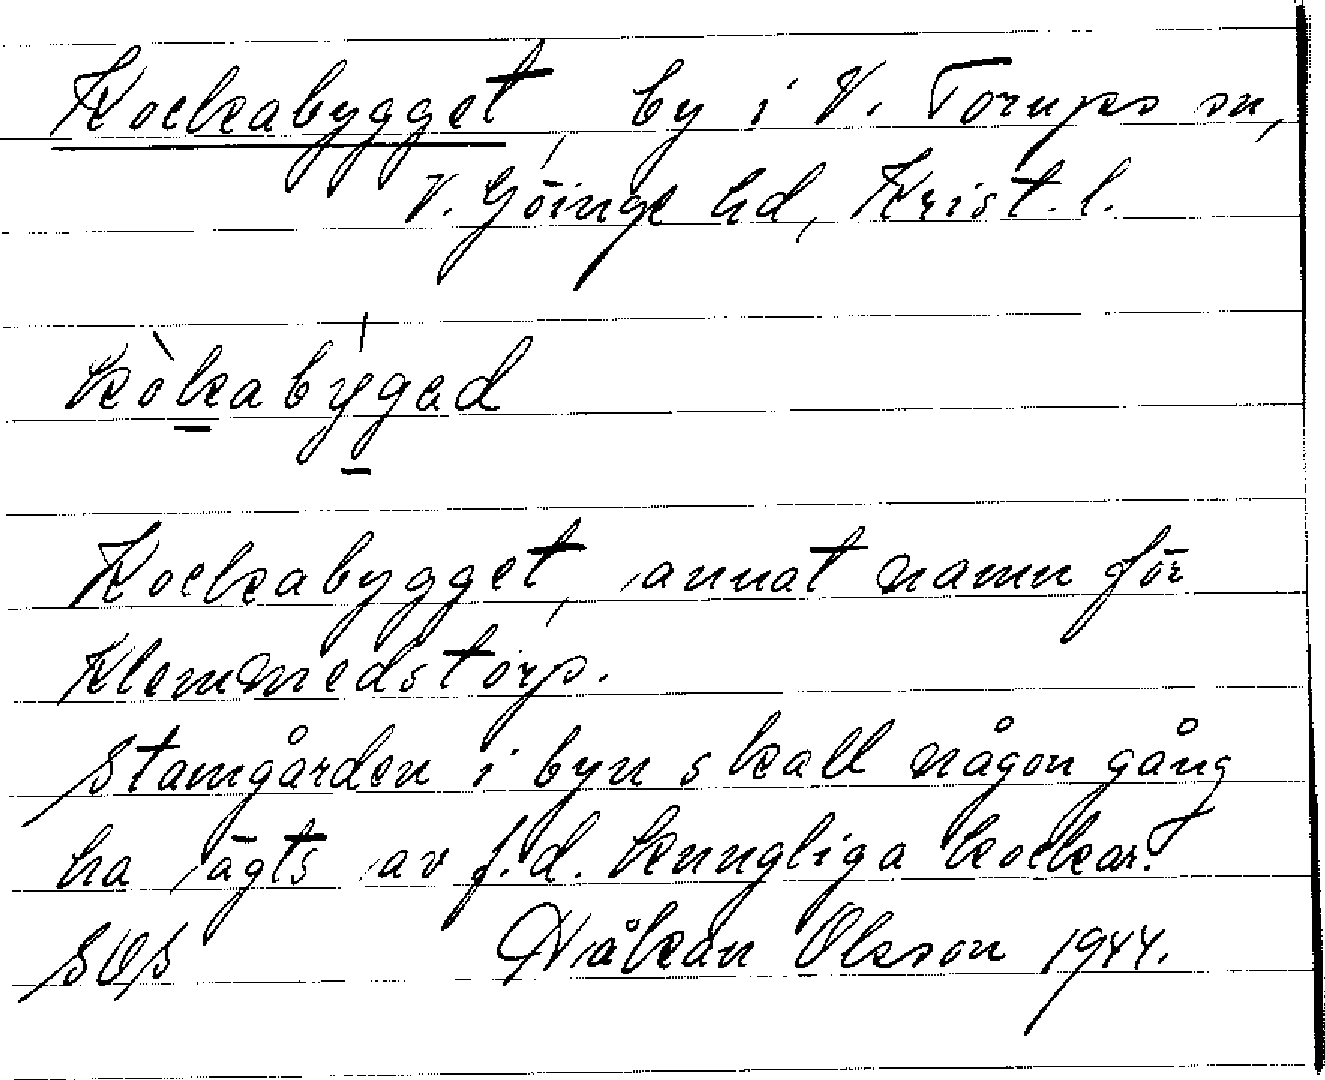 Kockabygget, by i V. Torups sn,
V. Göinge hd, Krist. l.
kòkabýgad
Kockabygget, annat namn för
Klemmedstorp.
Stamgården i byn skall någon gång
ha ägts av f.d. kungliga kockar.
SOS Håkan Olsson 1944.